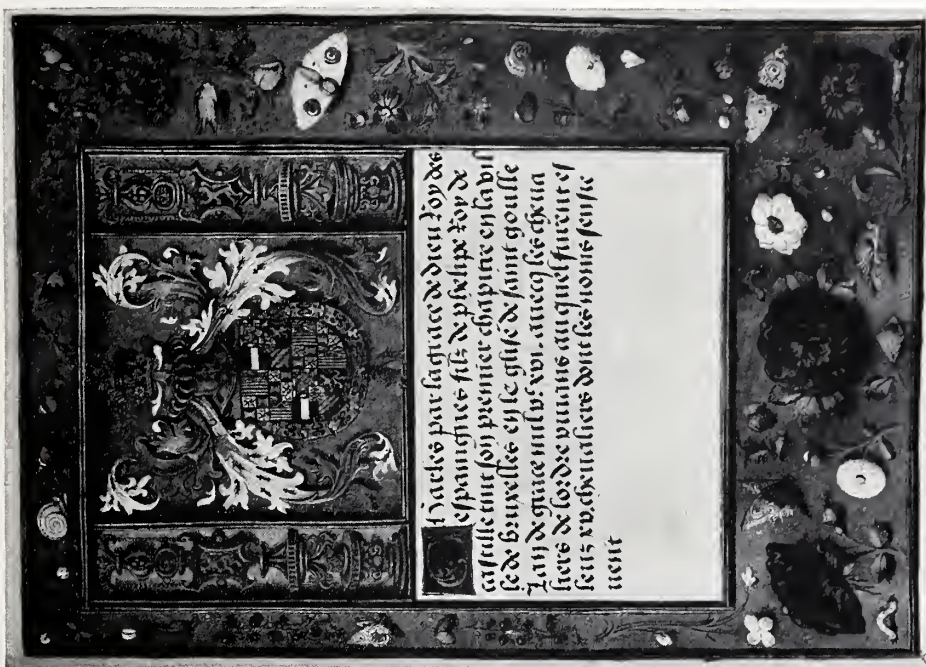 Charles par la grace de dieu Roy des
espaingnes filz de phelipe Roy de
castille tint son premier chapitre en la vil
le de bruxelles en le glise de saint goulle
Lan de grace mil vc xvi. avecq les cheva
liers de lordre vivans auquel furent es
leuz xv. chevaliers dont les noms sensie
vent